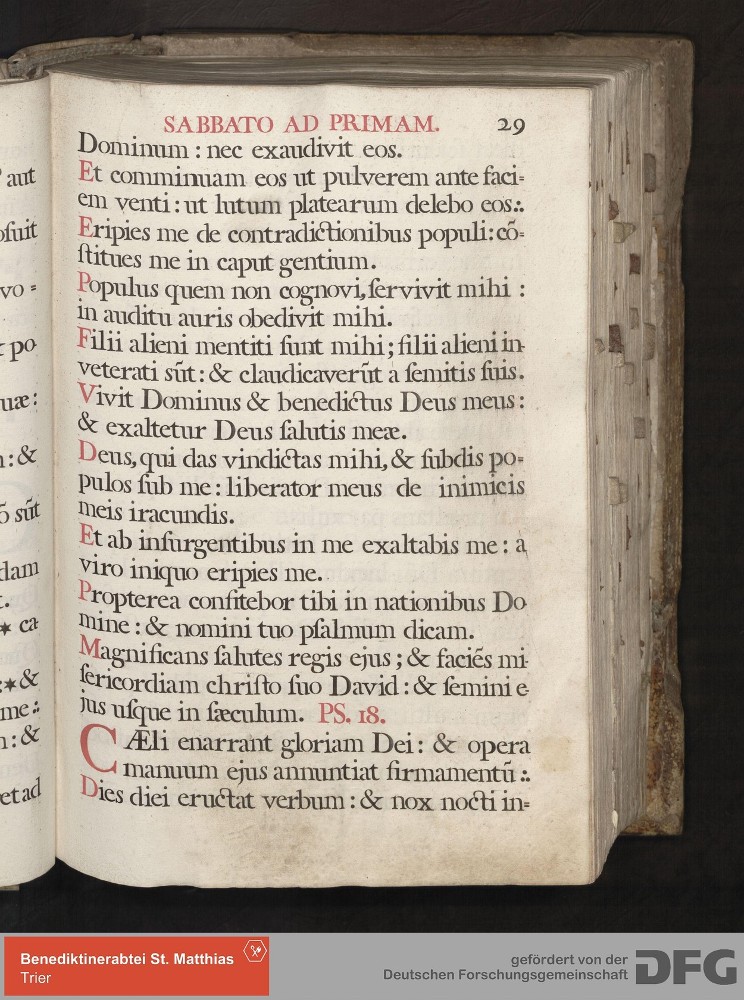 aut
ofuit
vo =
po
uæ:
: &
õ sũt
dam
* ca
: * &
me :.
n : &
et ad
SABBATO AD PRIMAM. 29
Dominum : nec exaudivit eos.
Et comminuam eos ut pulverem ante faci=
em venti : ut lutum platearum delebo eos:.
Eripies me de contradictionibus populi: cõ=
ſtitues me in caput gentium.
Populus quem non cognovi, ſervivit mihi :
in auditu auris obedivit mihi.
Filii alieni mentiti ſunt mihi ; filii alieni in-
veterati sũt : & claudicaverũt a ſemitis ſuis.
Vivit Dominus & benedictus Deus meus :
& exaltetur Deus ſalutis meæ.
Deus, qui das vindictas mihi, & ſubdis po=
pulos ſub me : liberator meus de inimicis
meis iracundis.
Et ab inſurgentibus in me exaltabis me : a
viro iniquo eripies me.
Propterea confitebor tibi in nationibus Do
mine : & nomini tuo pſalmum dicam.
Magnificans ſalutes regis ejus ; & faciẽs mi-
ſericordiam chriſto ſuo David : & ſemini e-
jus uſque in ſæculum. PS. 18.
CÆli enarrant gloriam Dei : & opera
manuum ejus annuntiat firmamentũ :.
Dies diei eructat verbum : & nox nocti in=
Benediktinerabtei St. Matthias
Trier
gefördert von der
Deutschen Forschungsgemeinschaft DFG